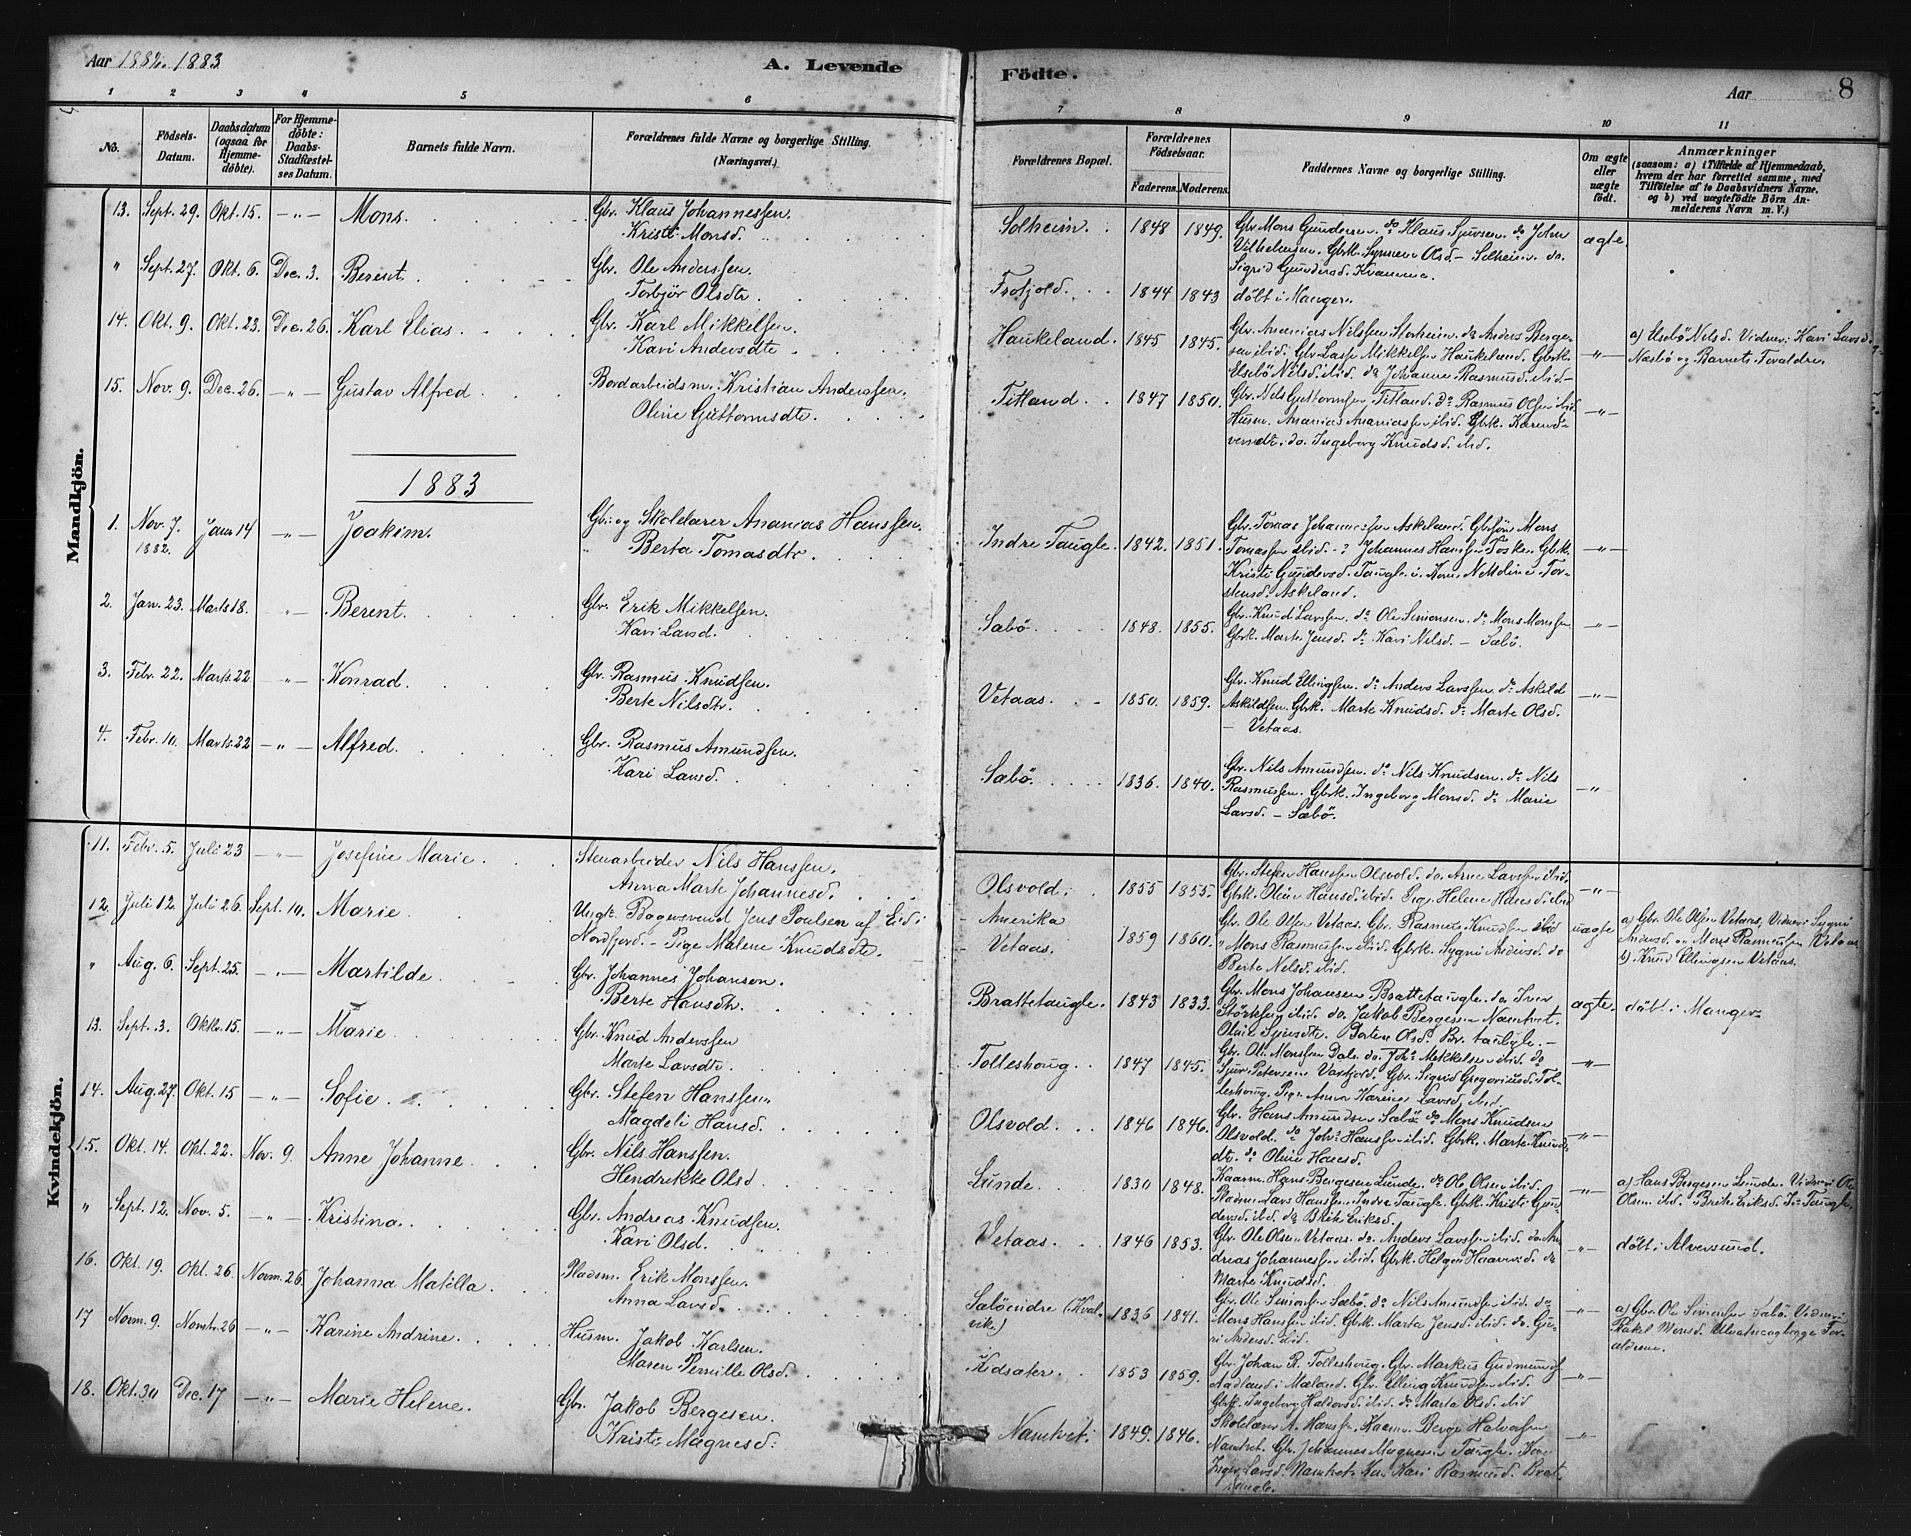 Aar 1882. 1883
A. Levende
Födte.
Aar
8
1 2 3 4 5 6 7 8 9 10 11
No.
Födsels-Datum.
Daabsdatum (ogsaa for Hjemmedöbte).
For Hjemmedöbte: Daabs-Stadfæstelses Datum.
Barnets fulde Navn.
Forældrenes fulde Navne og borgerlige Stilling.
(Næringsvei.)
Forældrenes Bopæl.
Forældrenes Födselsaar.
Faderens. Moderens.
Faddernes Navne og borgerlige Stilling.
Om ægte eller uægte födt.
Anmærkninger
(saasom: a) i Tilfælde af Hjemmedaab, hvem der har forrettet samme, med Tilföielse af to Daabsvidners Navne. og b) ved uægtefödte Börn Anmelderens Navn m. V.)
Mandkjön.
13. Sept. 29. Okt. 15. -„- Mons. Gbr. Klaus Johannessen.
Kristi Monsd.
Solheim. 1848 1849. Gbr Mons Gundersen. do Klaus Sjursen. do John
ægte.
Sigrid Gundersd. Kvamme.
„ Sept. 27. Okt. 6. Dec. 3. Berent. Gbr. Ole Anderssen.
Torbjör Olsdtr.
1844 1843 döbt i Manger.
14. Okt. 9. Okt. 23. Dec. 26. Karl Elias. Gbr. Karl Mikkelsen.
Kari Andersdtr.
Haukeland. 1845 1845. Gbr. Ananias Nilssen
Gbr. Lasse Mikkelsen Haukeland. Gbrk.
Elsebö Nilsd. ibid. do Johanne Rasmusd. ibid -
-„- a) Elsebö Nilsd. Vidner: Kari Larsd.
Næsbö og Barnets Forældre.
15. Nov. 9. Dec. 26. -„- Gustav Alfred. Bordarbeidsm. Kristian Anderssen.
Oline Guttormsdtr.
Titland. 1847 1850. Gbr. Nils Guttormsen Titland. do Rasmus Olsen ibid.
Husm. Ananias Ananiassen ibid. Gbrk.
do. Ingeborg Knudsd. ibid.
-„-
1883
1. Nov. 7. 1882. Janr 14 -„- Joakim. Gbr. og Skolelærer Ananias Hanssen.
Berta Tomasdtr.
Indre Taugle. 1842. 1851. Gbr. Tomas Johannessen Askeland. Gbrsön Mons
Tomassen ibid. Johannes Hanssen Toske. Gbrk.
Kristi Gundersd. Taugle.
Askeland.
-„-
2. Jan. 23. Marts 18. -„- Berent. Gbr. Erik Mikkelsen.
Kari Larsd.
Sæbö. 1848. 1855. Gbr. Knud Larssen. do Ole Simonsen. do Mons Monssen
Gbrk. Marte Jensd. do Kari Nilsd. - Sæbö.
-„-
3. Febr. 22. Marts 22 -„- Konrad. Gbr. Rasmus Knudsen.
Berte Nilsdtr.
Vetaas. 1850. 1859. Gbr. Knud Ellingsen. do Anders Larssen. do Askild
Askildsen. Gbrk. Marte Knudsd. do Marte Olsd.
- Vetaas.
-„-
4. Febr. 10. Marts 22 -„- Alfred. Gbr. Rasmus Amundsen.
Kari Larsd.
Sæbö. 1836. 1840. Gbr. Nils Amundsen. do Nils Knudsen. do Nils
Rasmussen. Gbrk. Ingeborg Monsd. do Marie
Larsd. - Sæbö.
-„-
Kvindekjön.
11. Febr. 5. Juli 23 -„- Josefine Marie. Stenarbeider Nils Hanssen.
Anna Marte Johannesd.
Olsvold. 1855 1855. Gbr. Stefen Hanssen Olsvold. do Arne Larssen ibid.
Gbrk. Oline Hansd. ibid. Pige Helene Hansd. ibid
-„-
12. Juli 12. Juli 26. Sept. 10. Marie. Ungk. Bagersvend Jens Poulsen af Eid i
Nordfjord. - Pige Malene Knudsdtr.
- Amerika
- Vetaas. 1859 1860. Gbr. Ole Olsen Vetaas. Gbr. Rasmus Knudsen ibid
Mons Rasmussen ibid. Gbrk. Sygni Andersd. do
Berte Nilsd. ibid.
uægte a) Gbr. Ole Olsen Vetaas, Vidner: Sygni
Andersd. og Mons Rasmussen Vetaas
b) Knud Ellingsen Vetaas.
„ Aug. 6. Sept. 25. -„- Martilde. Gbr. Johannes Johansen.
Berte Hansdtr.
Brattetaugle. 1843 1833. Gbr. Mons Johansen Brattetaugle. do Iver
ibid. do. Jakob Bergesen Namtvet.
ægte. döbt i Manger
13. Sept. 3. Oktr. 15. -„- Marie. Gbr. Knud Anderssen
Marte Larsdtr.
Tolleshoug. 1847 1845. Gbr. Ole Monssen Dale. do Johs Mikkelsen ibid. do
Sjur Petersen Gbr. Sigrid Gregoriusd. Tolleshoug.
Larsd. ibid.
-„-
14. Aug. 27. Okt. 15 -„- Sofie. Gbr. Stefen Hanssen.
Magdeli Hansd.
Olsvold. 1846 1846. Gbr. Hans Amundsen Sæbö do Mons Knudsen
Olsvold. do Johs Hanssen ibid. Gbrk. Marte Knudsdtr.
do Oline Hansd.
-„-
15. Okt. 14. Okt. 22. Nov. 9. Anne Johanne. Gbr. Nils Hanssen.
Hendrikke Olsd.
Lunde. 1830 1848. Kaarm. Hans Bergesen Lunde. do Ole Olsen ibid.
Pladsm. Lars Hanssen Indre Taugle. Gbrk. Kristi Gundersd. ibid. do Brite Eriksd.
-„- a) Hans Bergesen Lunde. Vidner: Ole
Olsen ibid. Brite Eriksd. I. Taugle.
„ Sept. 12. Nov. 5. -„- Kristina. Gbr. Andreas Knudsen.
Kari Olsd.
Vetaas. 1846 1853. Gbr. Ole Olsen Vetaas. do. Anders Larssen ibid. do Andreas Johannessen ibid. Gbrk. Helga
Marte Knudsd.
-„- döbt i Alversund.
16. Okt. 19. Okt. 26. Novm. 26. Johanna Matilla. Pladsm. Erik Monssen.
Anna Larsd.
Sæböindre (Kvalvik.) 1836 1841. Gbr. Ole Simonsen Sæbö. do Nils Amundsen ibid. do
Mons Hanssen ibid. Gbrk. Marta Jensd. ibid. do
Andersd. ibid.
-„- a) Gbr. Ole Simonsen Sæbö. Vidner:
Rakel Monsd.
17 Novm. 9. Novmbr. 26 -„- Karine Andrine. Husm. Jakob Karlsen.
Maren Pernille Olsd.
Kidsater. 1853 1859. Gbr. Johan R. Tolleshoug. Gbr. Markus Gudmunds.
Aadland i Mæland. Gbr. Elling Knudsen ibid.
Gbrk. Ingeborg Halvorsd. ibid. do Marta Olsd. ibid
-„-
18. Okt. 30 Dec. 17 -„- Marie Helene. Gbr. Jakob Bergesen.
Kristi Magnesd.
Namtvet. 1849. 1846. Skolelærer A. Hanssen. Kaarm. Berge Halvorsen
Namtvet. Gbr. Johannes Magnesen Taugle. Kone
Inger Larsd. Namtvet. Kari Rasmusd. Brattaugle.
-„-